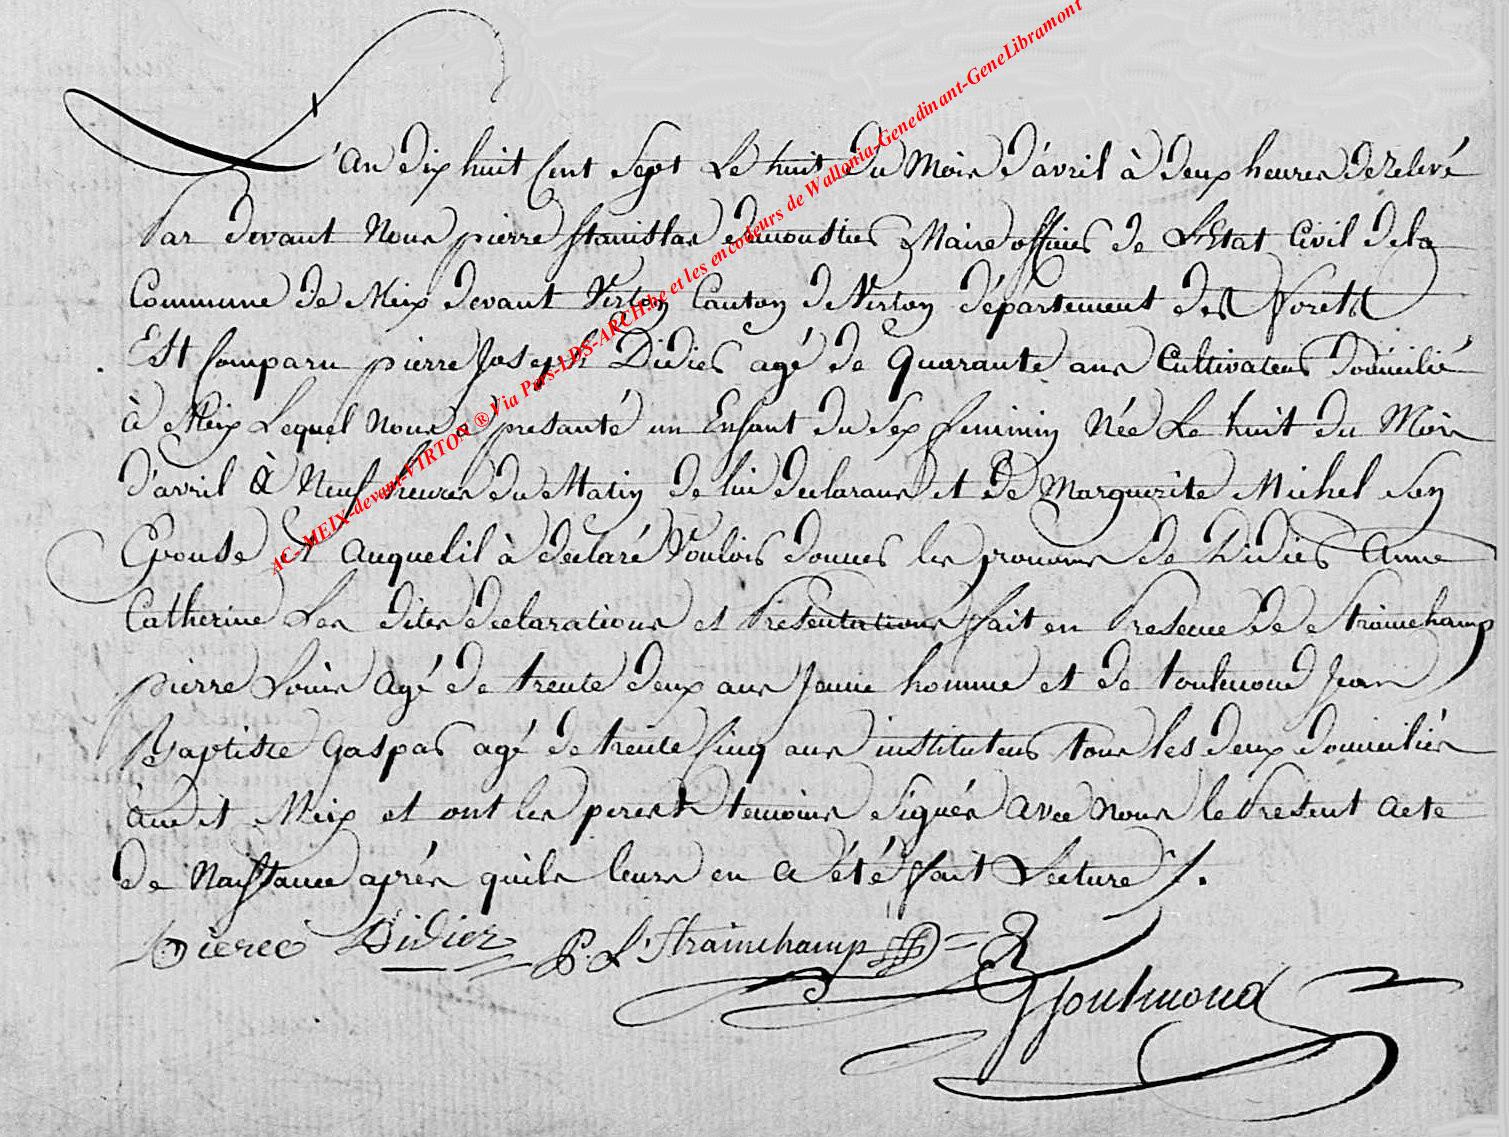 L'an dix huit Cent Sept Le huit Du Mois D'avril à Deux heures De relevé
Par devant Nous pierre Stanislas edmoustier Maire officier de L'Etat Civil dela
Commune de Meix devant Virton Canton de Virton département des Foretst
Est Comparu pierre Joseph Didier agé de Quarante ans Cultivateur Domicilié
à Meix Lequel Nous a presanté un Enfant du Sex feminin Née Le huit du Mois
D'avril à Neuf heures du Matin de lui declarans et de Marguerite Michel son
Epouse et auquel il à declaré Voulois donner les prenoms de Didier Anne
Catherine Les dites declarations et Presentations fait en Presence de Strainchamp
pierre Louis Agé de trente deux ans Jeune homme et de toulmond Jean
Baptiste Gaspar agé de trente Cinq ans instituteur tous les deux domiciliés
audit Meix et ont les pere et temoins signés Avec Nous le Present acte
de Naissance après quils leurs en a été fait Lecture /.
Pierre Didier P. L. Strainchamp
Toulmond
AC-MEIX-devant-VIRTON ® Via Pers-LDS-ARCH.be et les encodeurs de Wallonia-Genedinant-GeneLibramont